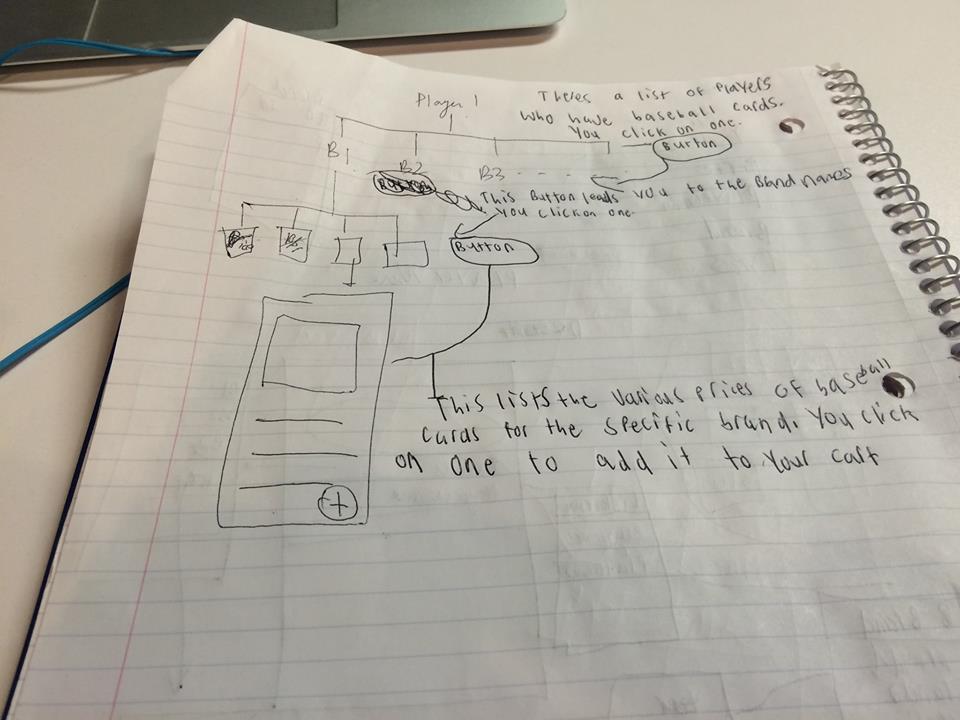 Player 1
Theres a list of Players
Who have baseball cards.
You click on one.
Button
B1
B2
B3 - - - -
This Button leads you to the Brand names
You click on one.
Button
This lists the various prices of baseball
cards for the specific brand. You click
on one to add it to your cart
+